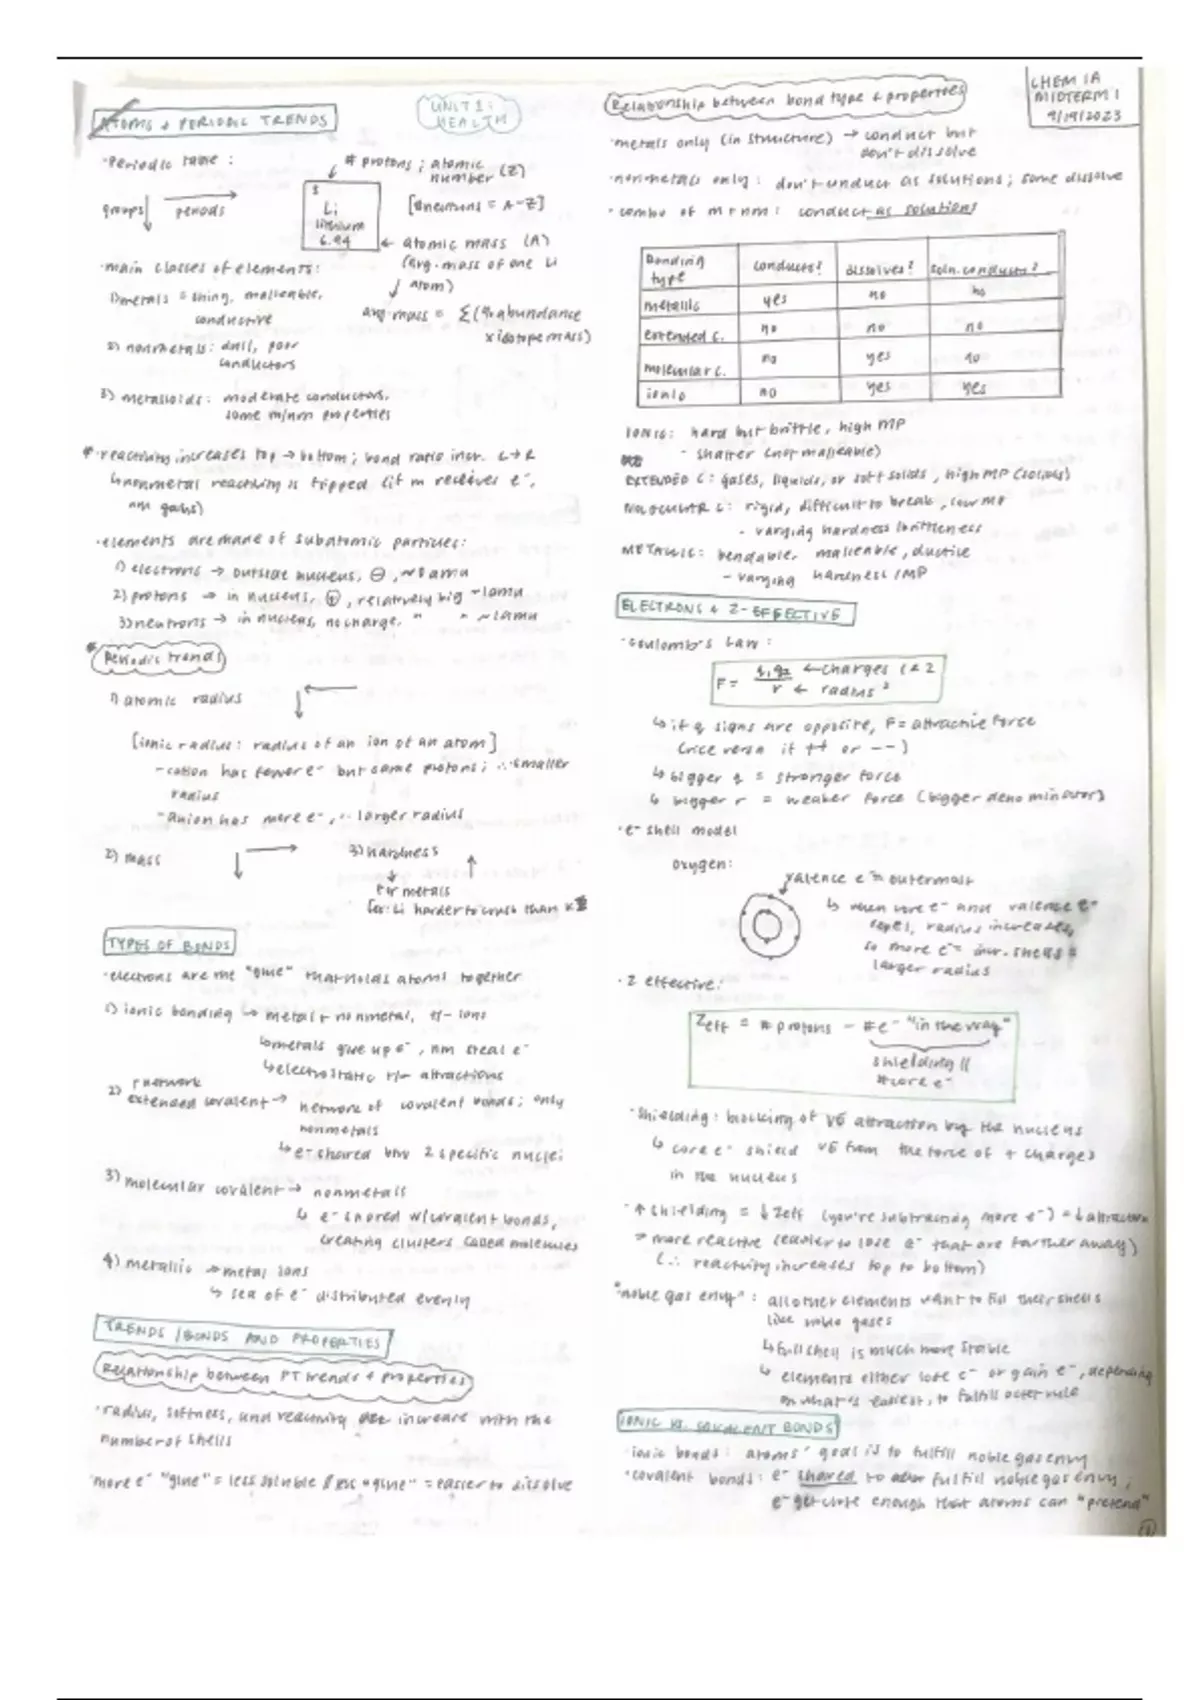 ATOMS & PERIODIC TRENDS
UNIT 1:
HEALTH
·Periodic table:
groups
periods
# protons; atomic
number (Z)
3
Li
lithium
6.94
[#neutrons = A-Z]
atomic mass (A)
(avg. mass of one Li
atom)
avg. mass = Σ(% abundance
x isotope mass)
·main classes of elements:
1) metals = shiny, malleable,
conductive
2) nonmetals: dull, poor
conductors
3) metalloids: moderate conductors,
some m/nm properties
* ·reactivity increases top → bottom; bond ratio incr. L→R
↳nonmetal reactivity is flipped (if m receives e⁻,
nm gains)
·elements are made of subatomic particles:
1) electrons → outside nucleus, ⊖, ~0 amu
2) protons → in nucleus, ⊕, relatively big ~1amu
3) neutrons → in nucleus, no charge, " " ~1amu
* Periodic trends
1) atomic radius
[ionic radius: radius of an ion of an atom]
- cation has fewer e⁻ but same protons; ∴ smaller
radius
- anion has more e⁻, ∴ larger radius
2) mass
3) hardness
for metals
(ex: Li harder to crush than K)
TYPES OF BONDS
·electrons are the "glue" that holds atoms together
1) ionic bonding ↳ metal + nonmetal, +/- ions
↳metals give up e⁻, nm steal e⁻
↳electrostatic +/- attractions
2) network
extended covalent → network of covalent bonds; only
nonmetals
↳ e⁻ shared btw 2 specific nuclei
3) molecular covalent → nonmetals
↳ e⁻ shared w/covalent bonds,
creating clusters called molecules
4) metallic → metal ions
↳ sea of e⁻ distributed evenly
TRENDS/BONDS AND PROPERTIES
Relationship between PT trends & properties
·radius, softness, and reactivity increase with the
number of shells
·more e⁻ "glue" = less soluble "glue" = easier to dissolve
Relationship between bond type & properties
CHEM 1A
MIDTERM 1
9/19/2023
·metals only (in structure) → conduct but
don't dissolve
·nonmetals only: don't conduct as solutions; some dissolve
·combo of m + nm: conduct as solutions
Bonding type conducts? dissolves? soln. conducts?
metallic yes no no
extended c. no no no
molecular c. no yes no
ionic no yes yes
IONIC: hard but brittle, high MP
- shatter (not malleable)
EXTENDED C: gases, liquids, or soft solids, high MP (solids)
MOLECULAR C: rigid, difficult to break, low MP
- varying hardness/brittleness
METALLIC: bendable, malleable, ductile
- varying hardness/MP
ELECTRONS & Z-EFFECTIVE
·Coulomb's Law:
F = q₁q₂ ← charges 1 & 2
r ← radius²
↳ if q signs are opposite, F = attractive force
(vice versa if ++ or --)
↳ bigger q = stronger force
↳ bigger r = weaker force (bigger denominator)
·e⁻ shell model
oxygen:
valence e⁻ = outermost
↳ when core e⁻ and valence e⁻
repel, radius increases,
so more e⁻ = incr. shells =
larger radius
·Z effective:
Zeff = # protons - #e⁻ "in the way"
shielding //
#core e⁻
·Shielding: blocking of VE attraction by the nucleus
↳ core e⁻ shield VE from the force of + charges
in the nucleus
·↑ shielding = ↓ Zeff (you're subtracting more e⁻) = ↓ attraction
→ more reactive (easier to lose e⁻ that are farther away)
(∴ reactivity increases top to bottom)
"noble gas envy": all other elements want to fill their shells
like noble gases
↳ full shell is much more stable
↳ elements either lose e⁻ or gain e⁻, depending
on what's easiest, to fulfill octet rule
IONIC VS. COVALENT BONDS
·ionic bonds: atoms' goal is to fulfill noble gas envy
·covalent bonds: e⁻ shared to fulfill noble gas envy;
e⁻ get close enough that atoms can "pretend"
1